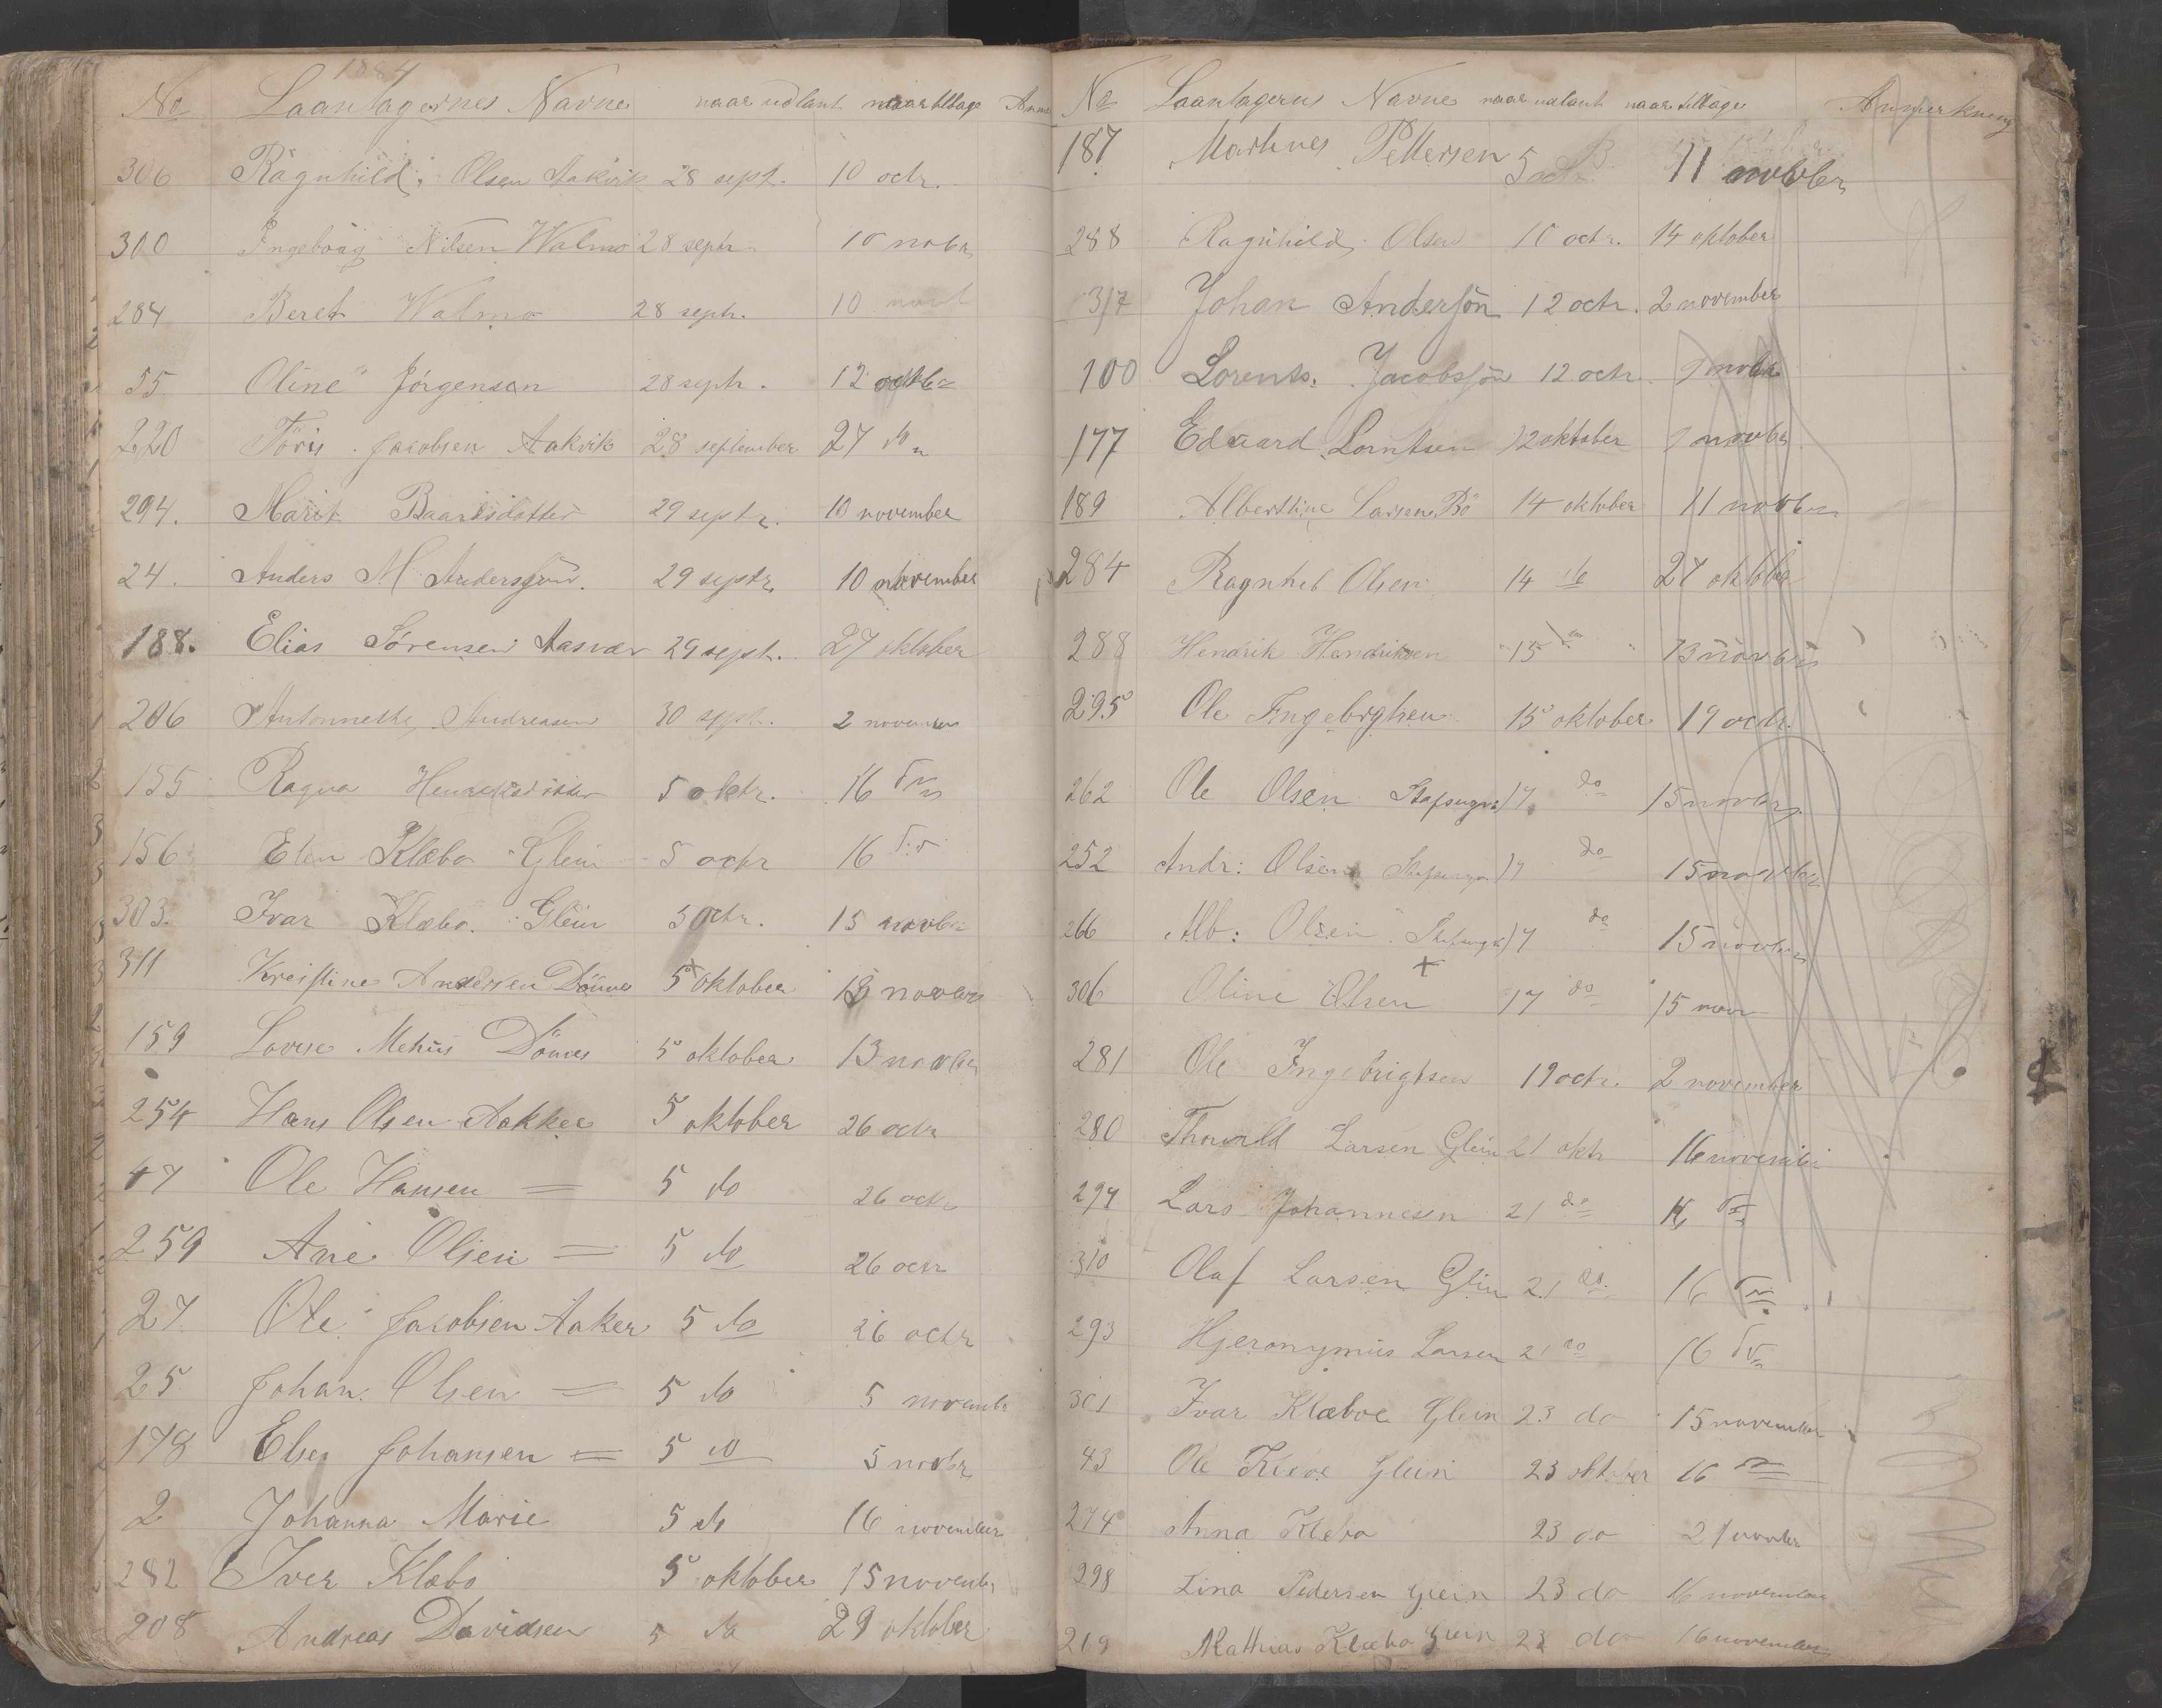 1884
No Laantagernes Navne naar udlant naar tilbage Anm
306 Ragnhild Olsen Aakvik 28 sept. 10 octr.
300 Ingeborg Nilsen Walmo 28 septr 10 nobr
284 Beret Walmo 28 septr. 10
55 Oline Jörgensen 28 septr. 12
220 Jacobsen Aakvik 28 september 27 do
294. Marit Baardsdatter 29 septr. 10 november
24. Anders M Anderssön. 29 septr. 10 november
188. Elias Sörensen Aasvær 29 sept. 27 oktober
206 Antonnethe Andreasen 30 sept. 2 november
155 Ragna 5 oktr. 16
156 Elen Klæbo Glein 5 octr 16
303. Ivar Klæbo Glein 5 octr. 15 novbr
311 Kreistine Andersen Dönnes 5 oktober 13 novbr
159 Lovise Mehus Dönnes 5 oktober 13 novbr
254 Hans Olsen Aakker 5 oktober 26 octr
47 Ole Hansen = 5 do 26 octr
259 Ane Olsen = 5 do 26 octr
27. Ole Jacobsen Aaker 5 do 26 octr
25 Johan Olsen = 5 do 5 novembr
178 Elen Johansen = 5 do 5 novbr
2 Johanna Marie 5 do 16 november
282 Iver Klæbo 5 oktober 15 novembr
208 Andreas Davidsen 5 do 29 oktober
No Laantagerns Navne naar udlant naar tilbage Anmerkning
187 Marthnes Pettersen 5 octr 11 novbber
288 Ragnhild Olsen 10 octr. 14 oktober
317 Johan Anderssön 12 octr. 2 november
100 Lorents. Jacobssön 12 octr. 9 nobr
177 Edvard Lorntsen 12 oktober 9 novbr
189 Alberttine Larsen Bö 14 oktober 11 novbr
284 Ragnhil Olsen 14 do 27 oktober
288 Hendrik Hendriksen 15 13 novbr
295 Ole Ingebrigtsen 15 oktober 19 octr.
262 Ole Olsen 17 do 15 novbr
252 Andr: Olsen 17 do 15 novbr
266 Alb: Olsen 17 do 15 novbr
306 Oline Olsen 17 do 15 novr
281 Ole Ingebrigtsen 19 octr. 2 november
280 Thorvald Larsen Glein 21 oktr 16 november
294 Lars Johannesen 21 do 16
310 Olaf Larsen Glein 21 do. 16
293 Hjeronymus Larsen 21 do 16
301 Ivar Klæboe Glein 23 do 15 november
43 Ole Glein 23 oktober 16
274 Anna Klæbo 23 do 21 novbr
298 Lina Pedersen Glein 23 do 16 november
219 Mathias Klæbo Glein 23 do 16 november